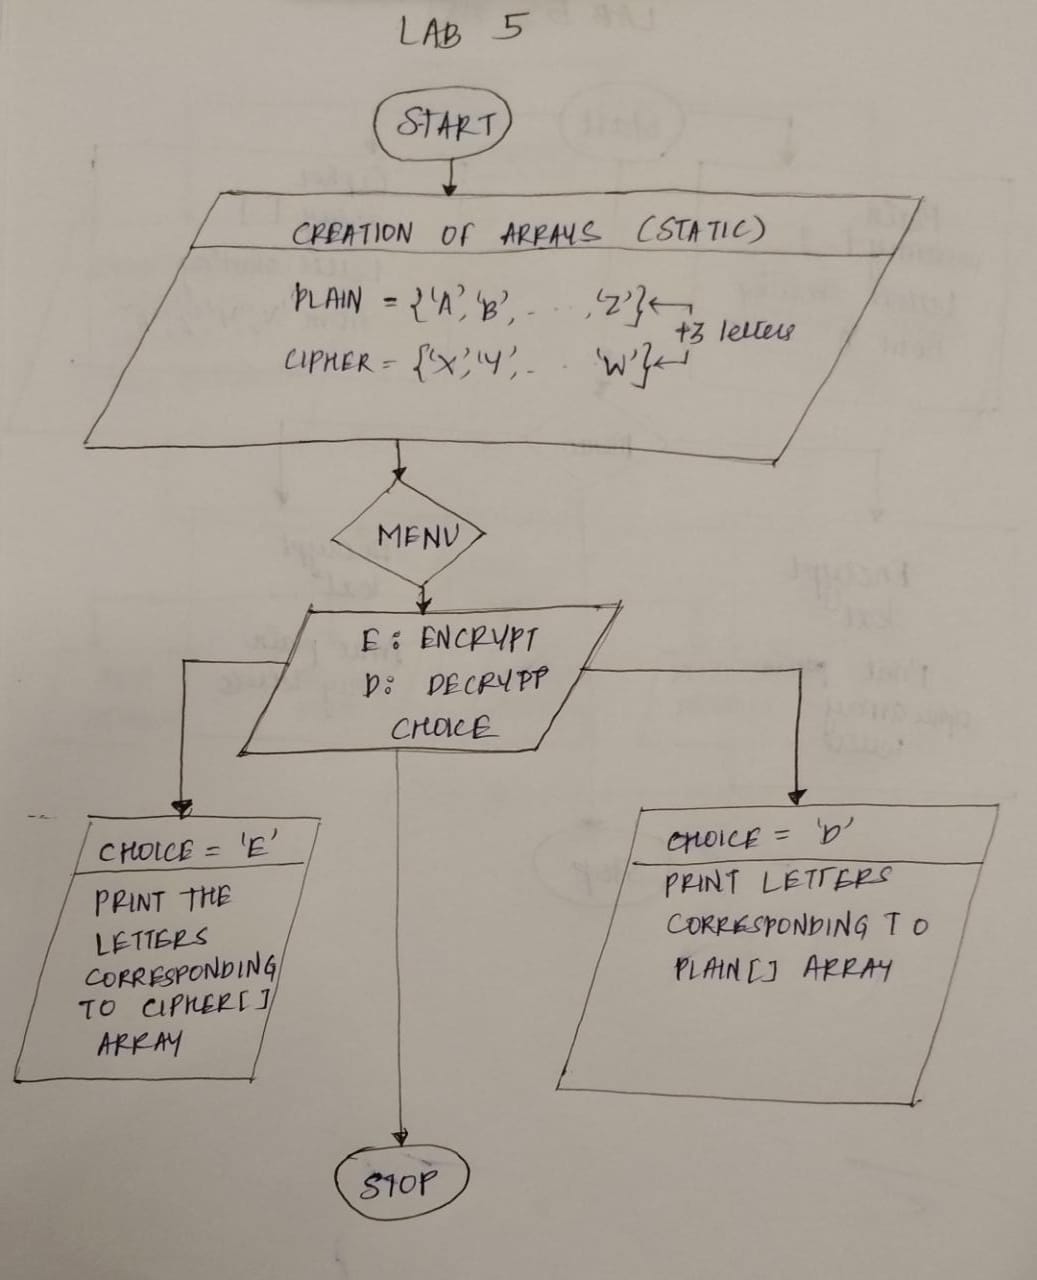 LAB 5
START
CREATION OF ARRAYS (STATIC)
PLAIN = {'A', 'B', - . . . , 'Z'}
+3 letters
CIPHER = {'X', 'Y', - . . 'W'}
MENU
E: ENCRYPT
D: DECRYPT
CHOICE
CHOICE = 'E'
PRINT THE
LETTERS
CORRESPONDING
TO CIPHER[]
ARRAY
CHOICE = 'D'
PRINT LETTERS
CORRESPONDING TO
PLAIN[] ARRAY
STOP